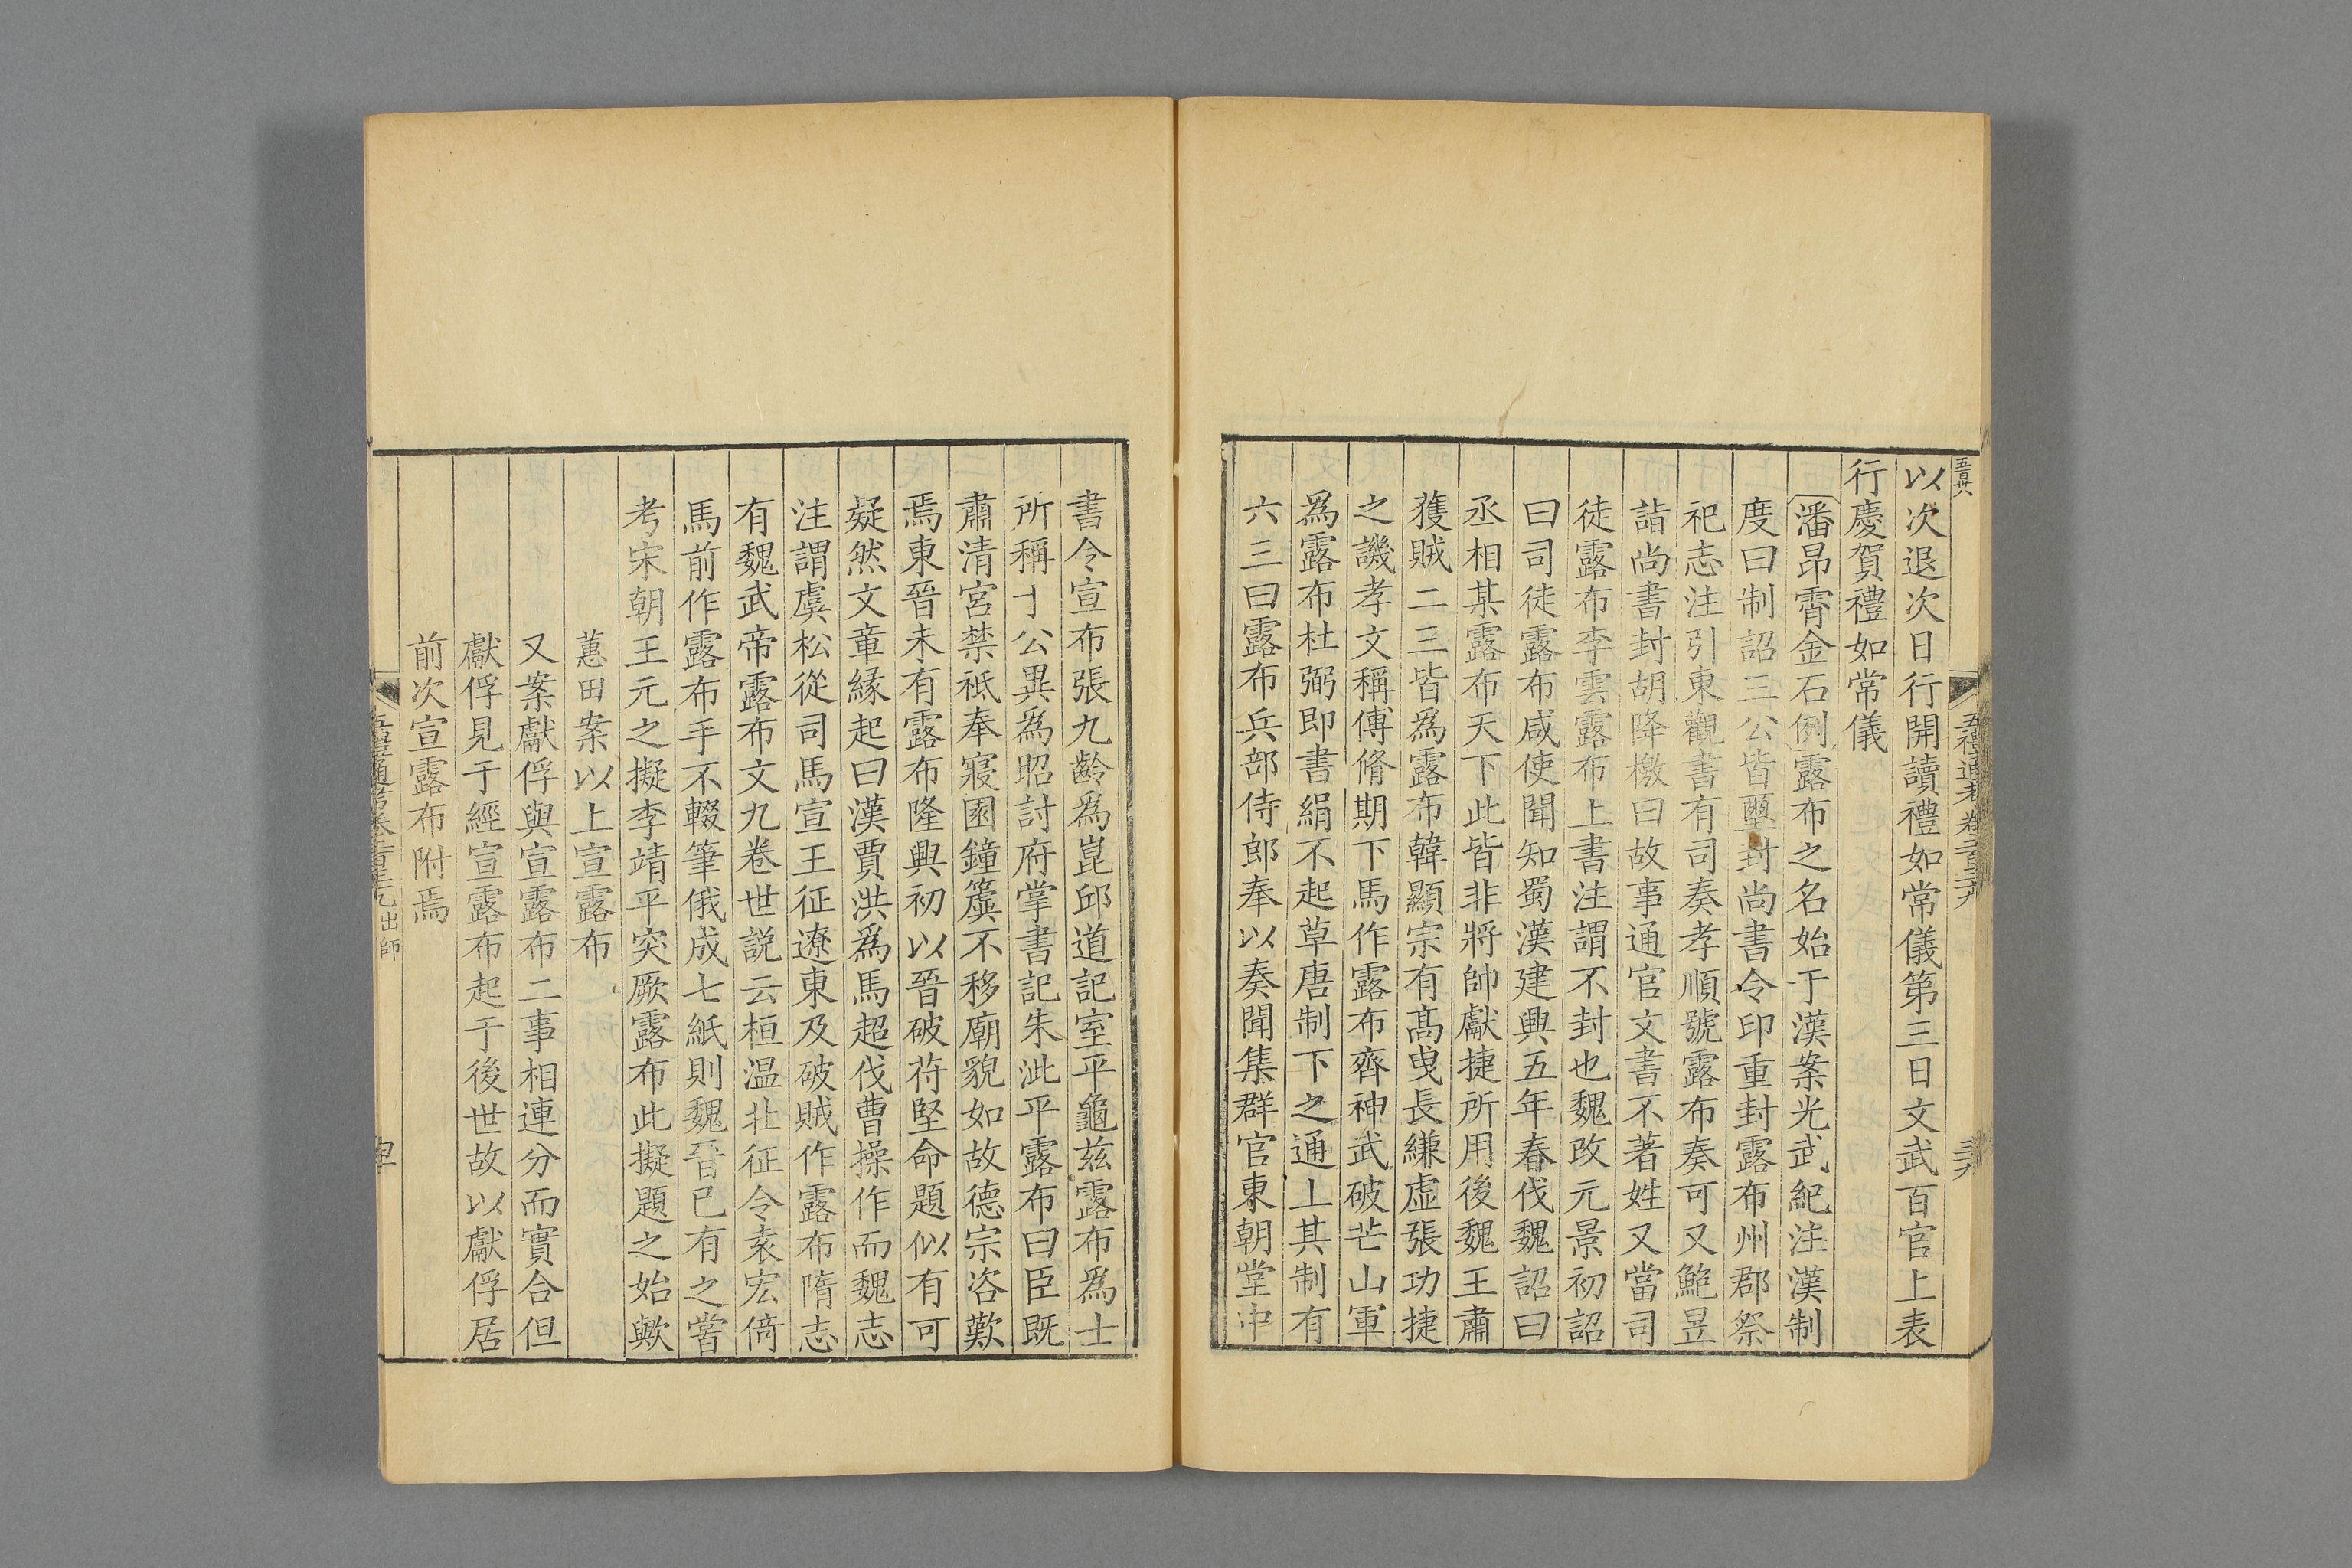 五百卅六
以次退次日行開讀禮如常儀第三日文武百官上表
行慶賀禮如常儀
潘昂霄金石例露布之名始于漢案光武紀注漢制
度曰制詔三公皆璽封尚書令印重封露布州郡祭
祀志注引東觀書有司奏孝順號露布奏可又鮑昱
詣尚書封胡降檄曰故事通官文書不著姓又當司
徒露布李雲露布上書注謂不封也魏改元景初詔
曰司徒露布咸使聞知蜀漢建興五年春伐魏詔曰
丞相某露布天下此皆非將帥獻捷所用後魏王肅
獲賊二三皆為露布韓顯宗有髙曵長縑虚張功捷
之譏孝文稱傅脩期下馬作露布齊神武破芒山軍
爲露布杜弼即書絹不起草唐制下之通上其制有
六三曰露布兵部侍郎奉以奏聞集群官東朝堂中
書令宣布張九齡爲崑邱道記室平龜兹露布爲士
所稱于公異爲昭討府掌書記朱泚平露布曰臣既
肅清宮禁祗奉寢園鐘簴不移廟貌如故德宗咨歎
焉東晉未有露布隆興初以晉破苻堅命題似有可
疑然文章縁起曰漢賈洪爲馬超伐曹操作而魏志
注謂虞松從司馬宣王征遼東及破賊作露布隋志
有魏武帝露布文九卷世説云桓温北征令袁宏倚
馬前作露布手不輟筆俄成七紙則魏晉已有之嘗
考宋朝王元之擬李靖平突厥露布此擬題之始歟
蕙田案以上宣露布
又案獻俘與宣露布二事相連分而實合但
獻俘見于經宣露布起于後世故以獻俘居
前次宣露布附焉